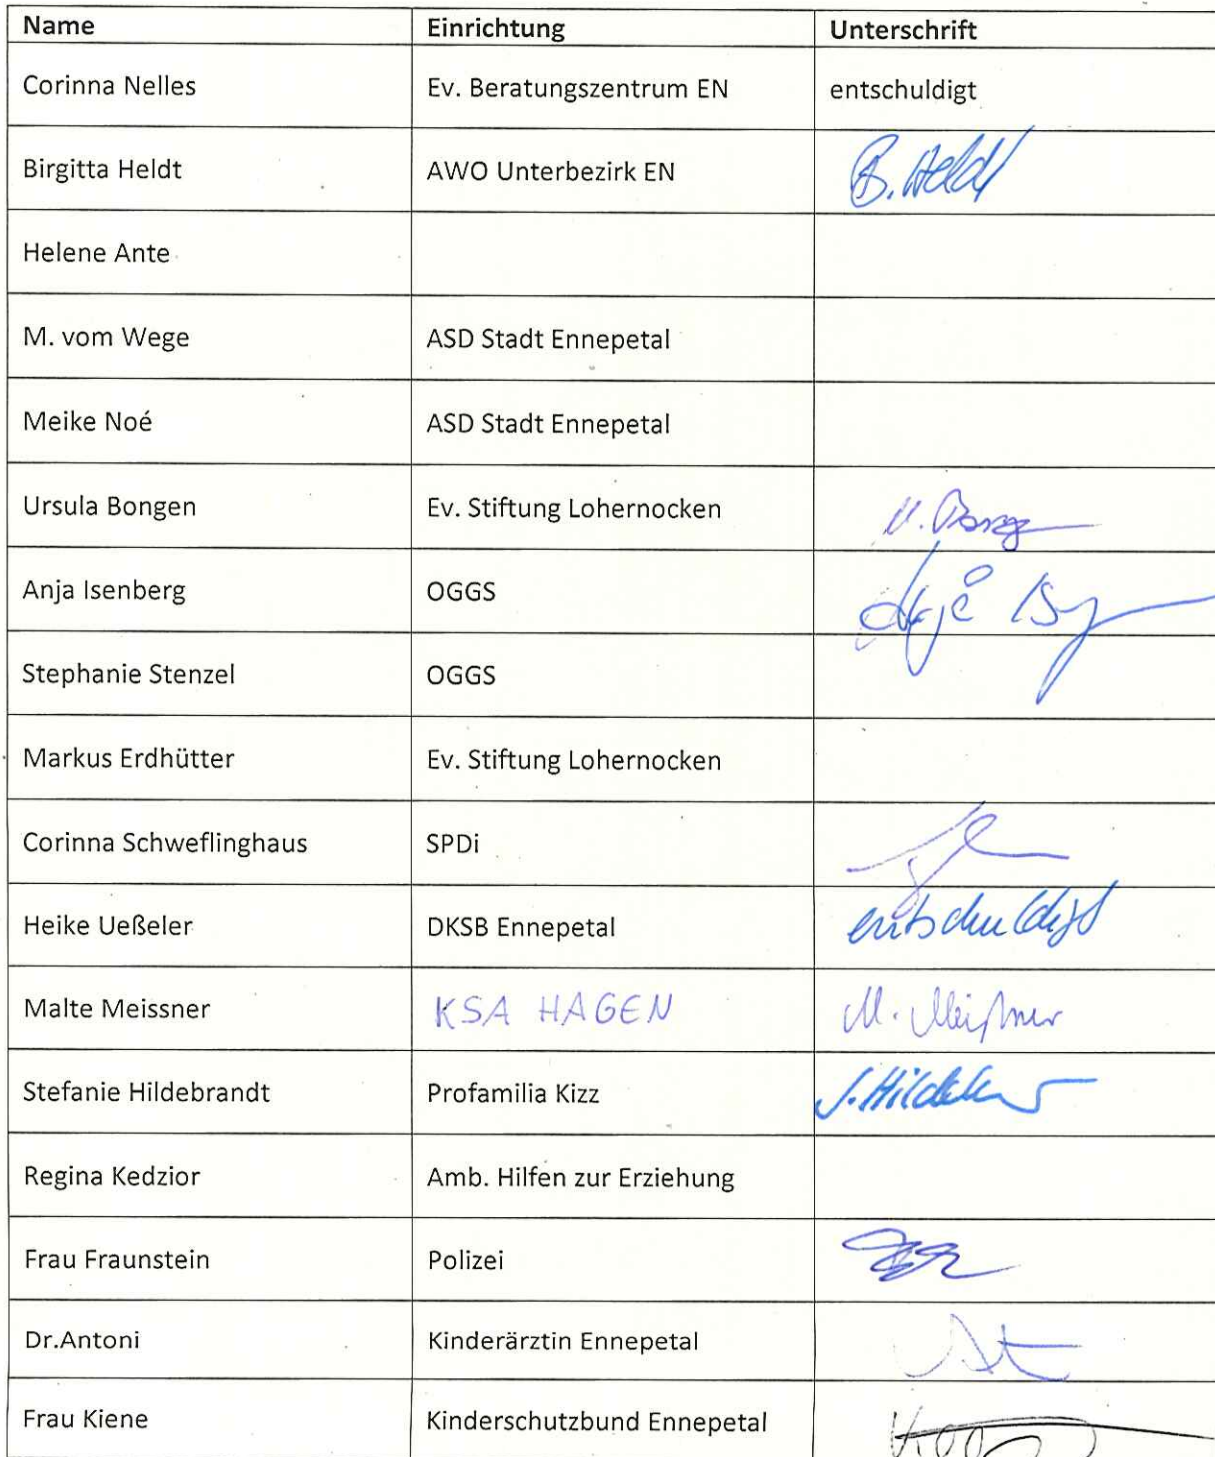 Name Einrichtung Unterschrift
Corinna Nelles Ev. Beratungszentrum EN entschuldigt
Birgitta Heldt AWO Unterbezirk EN B. Heldt
Helene Ante
M. vom Wege ASD Stadt Ennepetal
Meike Noé ASD Stadt Ennepetal
Ursula Bongen Ev. Stiftung Lohernocken
Anja Isenberg OGGS
Stephanie Stenzel OGGS
Markus Erdhütter Ev. Stiftung Lohernocken
Corinna Schweflinghaus SPDi
Heike Ueßeler DKSB Ennepetal entschuldigt
Malte Meissner KSA HAGEN M. Meißner
Stefanie Hildebrandt Profamilia Kizz
Regina Kedzior Amb. Hilfen zur Erziehung
Frau Fraunstein Polizei
Dr.Antoni Kinderärztin Ennepetal
Frau Kiene Kinderschutzbund Ennepetal